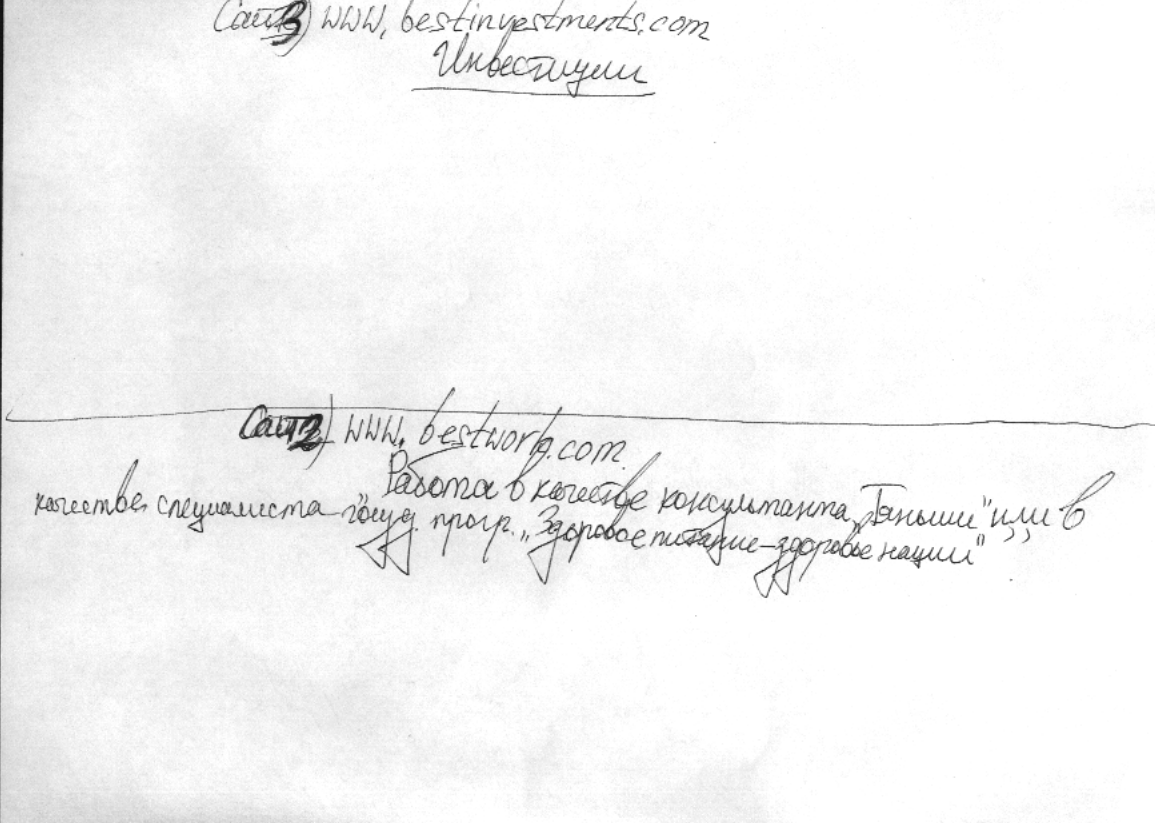 Сайт 3) www. bestinvestments.com
Инвестиции
Сайт 2) www. bestwork.com.
Работа в качестве консультанта „Тяньши" или в
качестве специалиста госуд. прогр. „Здоровое питание – здоровье нации"